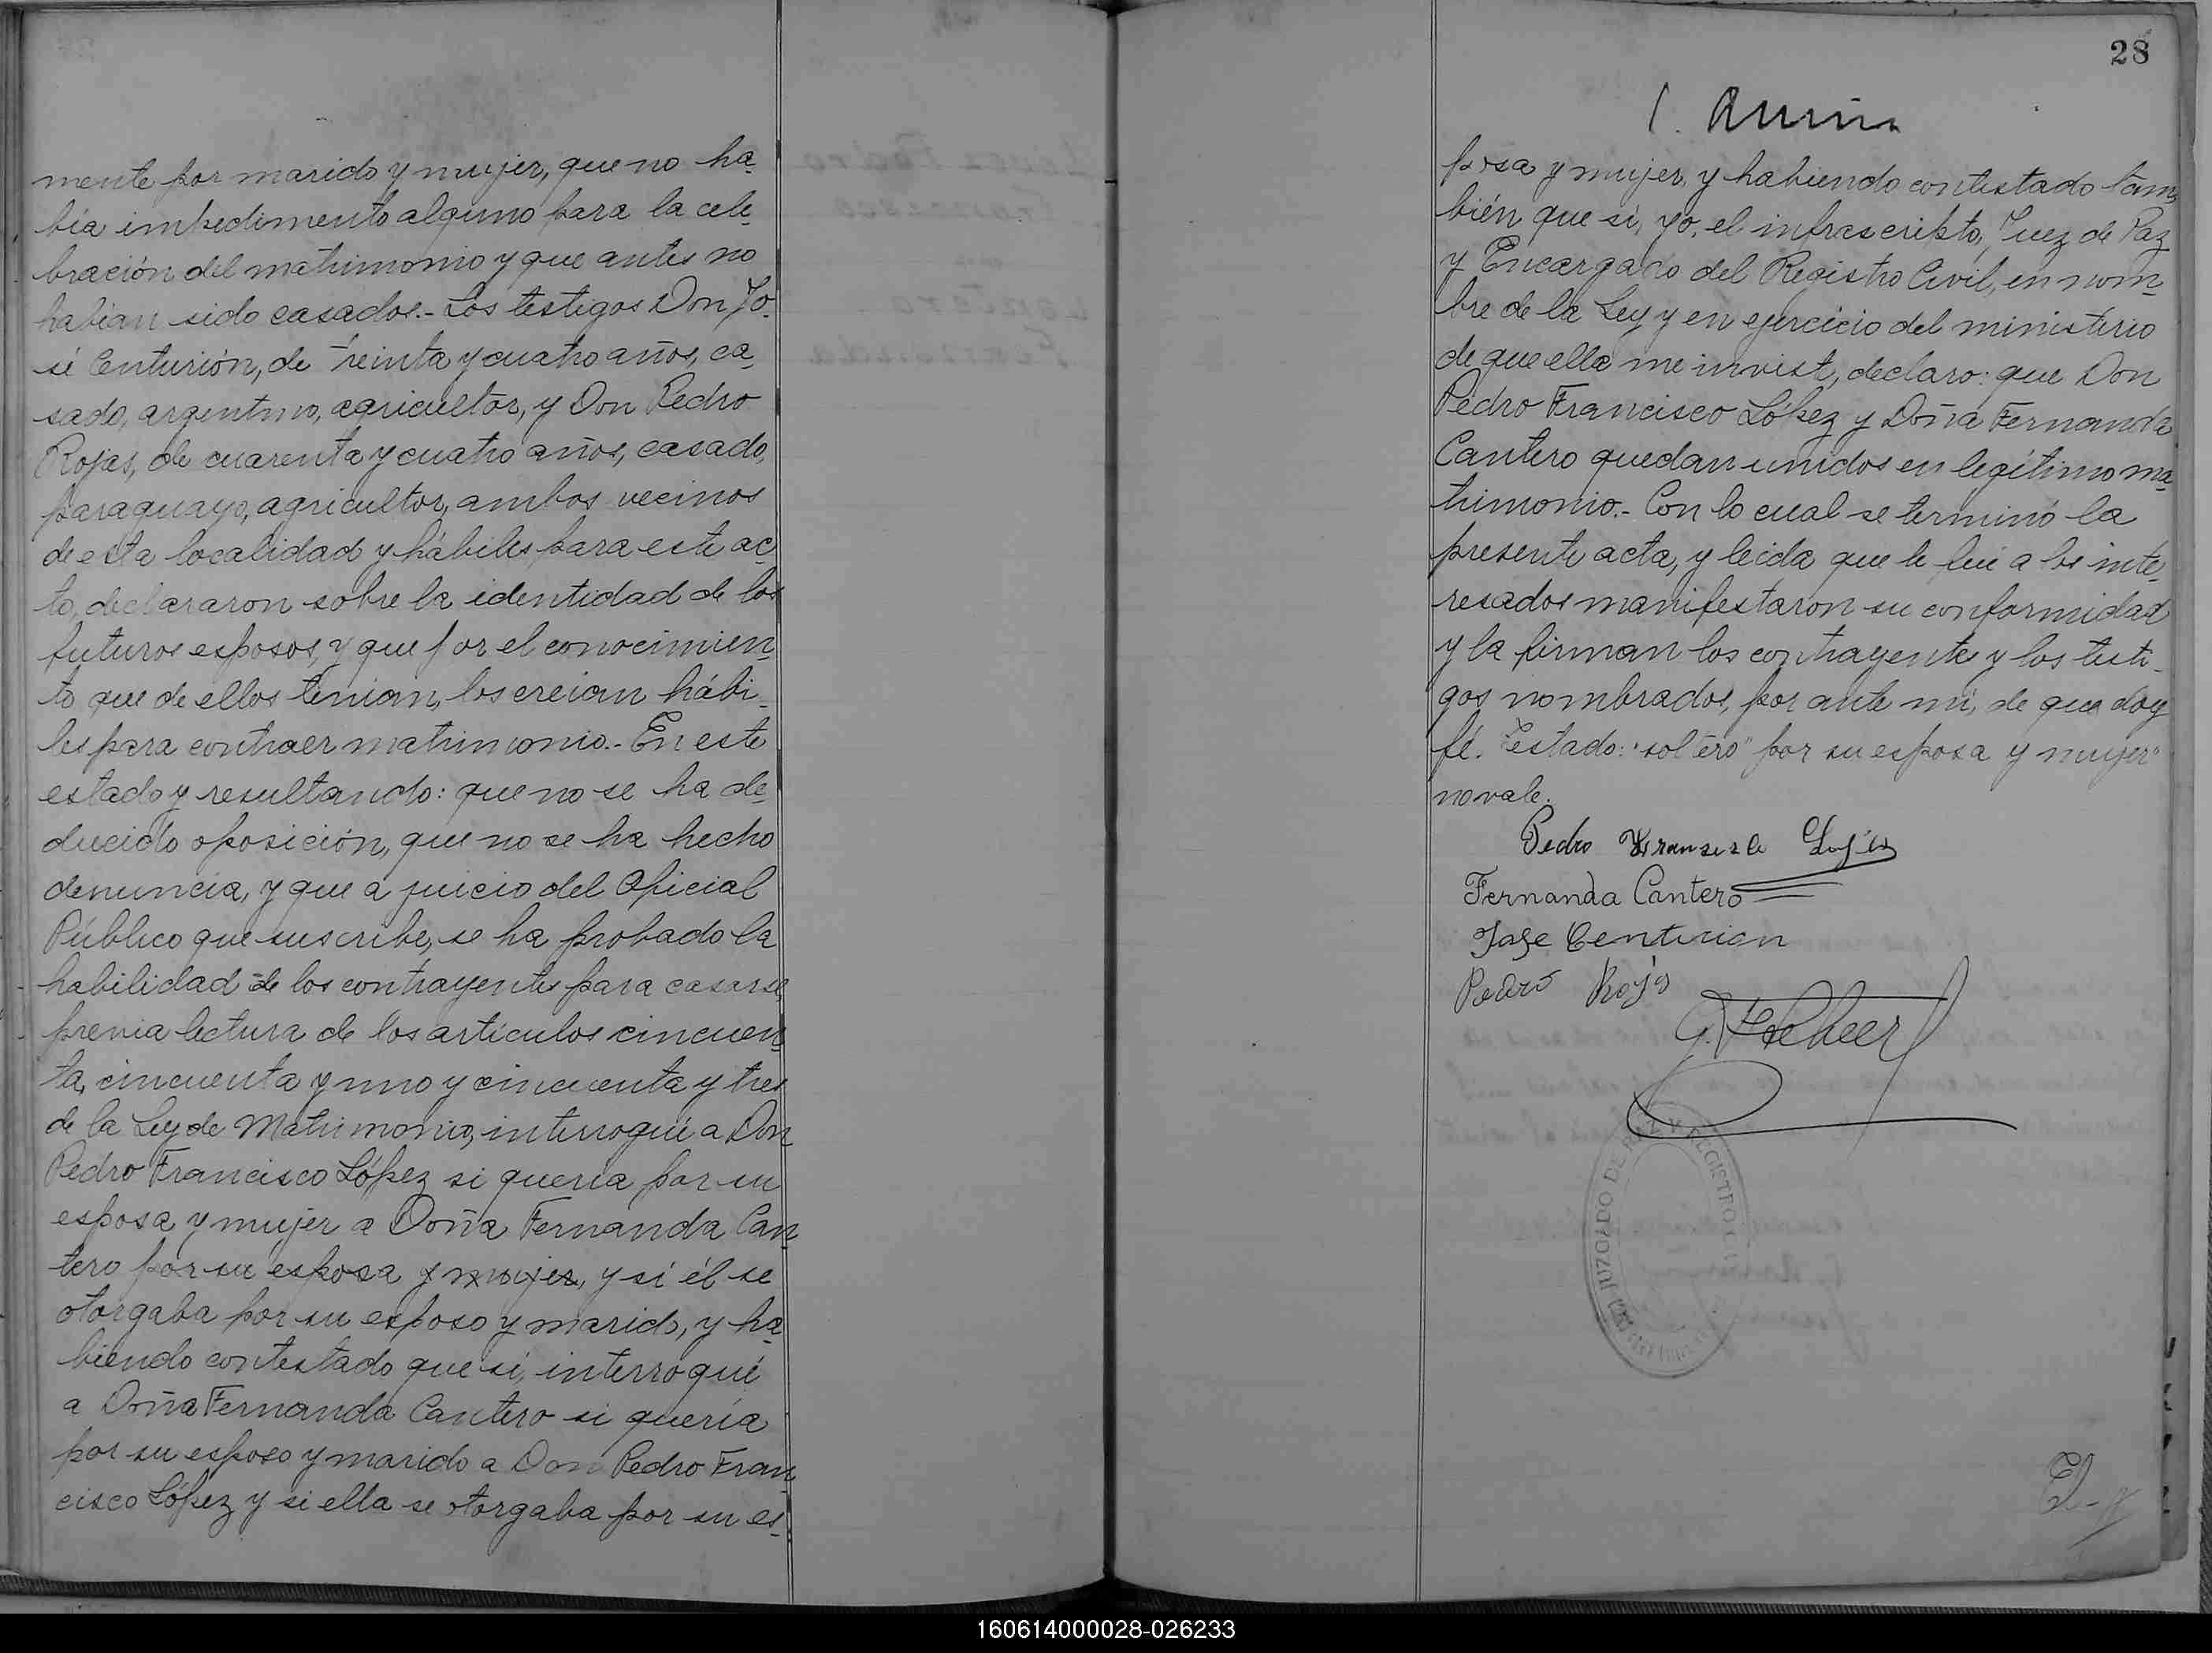 mente por marido y mujer, que no ha-
bía impedimento alguno para la cele-
bración del matrimonio y que antes no
habían sido casados.- Los testigos Don Jo-
sé Centurión, de treinta y cuatro años, ca-
sado, argentino, agricultor, y Don Pedro
Rojas, de cuarenta y cuatro años, casado,
paraguayo, agricultor, ambos vecinos
de esta localidad y hábiles para este ac-
to, declararon sobre la identidad de los
futuros esposos, y que por el conocimien-
to que de ellos tenian, los creian hábi-
les para contraer matrimonio.- En este
estado y resultando: que no se ha de-
ducido oposición, que no se ha hecho
denuncia, y que a juicio del Oficial
Público que suscribe, se ha probado la
habilidad de los contrayentes para casarse,
previa lectura de los artículos cincuen-
ta, cincuenta y uno y cincuenta y tres
de la Ley de Matrimonio, interrogué a Don
Pedro Francisco López si quería por su
esposa y mujer a Doña Fernanda Can-
tero por su esposa y mujer, y si él se
otorgaba por su esposo y marido, y ha-
biendo contestado que sí, interrogué
a Doña Fernanda Cantero si quería
por su esposo y marido a Don Pedro Fran-
cisco López y si ella se otorgaba por su es-
28
posa y mujer, y habiendo contestado tam-
bién que sí, yo, el infrascripto, Juez de Paz
y Encargado del Registro Civil, en nom-
bre de la Ley y en ejercicio del ministerio
de que ella me invist, declaro: que Don
Pedro Francisco López y Doña Fernanda
Cantero quedan unidos en legítimo ma-
trimonio.- Con lo cual se terminó la
presente acta, y leída que le fué a los inte-
resados manifestaron su conformidad
y la firman los contrayentes y los testi-
gos nombrados, por ante mí, de que doy
fé. Testado: "soltero" por su esposa y mujer"
no vale.
Pedro Fransisco
Fernanda Cantero
Jose Centurion
Pedro Rojas
JUZGADO DE PAZ Y REGISTRO
160614000028-026233